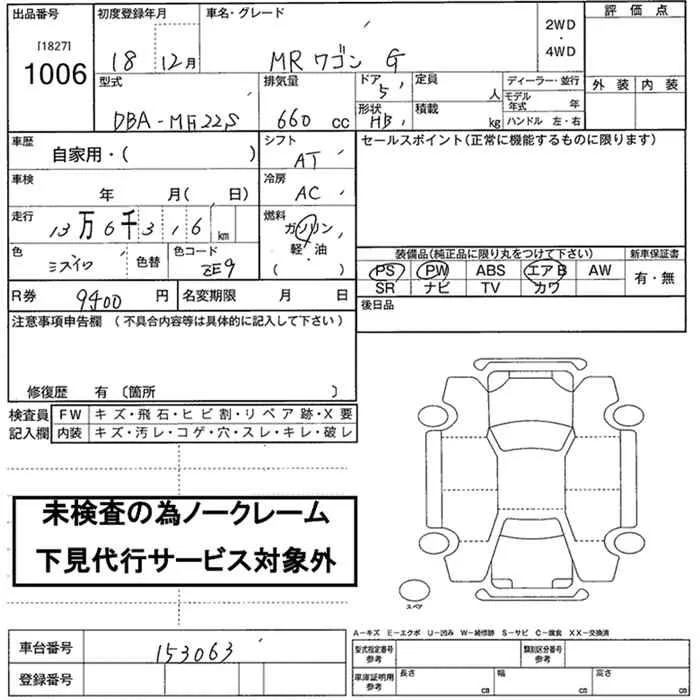 出品番号 初度登録年月 車名・グレード 2WD・4WD 評価点
[1827]
1006 18 12月 MRワゴン G
外装 内装
型式 排気量 ドア 5 定員 人 ディーラー・並行
モデル年式 年
DBA-MH22S 660 cc 形状 HB 積載 kg ハンドル 左・右
車歴 シフト セールスポイント(正常に機能するものに限ります)
自家用・( ) AT
車検 冷房
年 月( 日) AC
走行 燃料
13万6千316 km ガソリン
軽・油
( )
色 色替 色コード 装備品(純正品に限り丸をつけて下さい) 新車保証書
ミズイロ ZE9 PS PW ABS エアB AW 有・無
SR ナビ TV カワ
R券 9400 円 名変期限 月 日 後日品
注意事項申告欄 (不具合内容等は具体的に記入して下さい)
修復歴 有 〔箇所 〕
検査員 FW キズ・飛石・ヒビ割・リペア跡・X要
記入欄 内装 キズ・汚レ・コゲ・穴・スレ・キレ・破レ
未検査の為ノークレーム
下見代行サービス対象外
スペア
A-キズ E-エクボ U-凹み W-補修跡 S-サビ C-腐食 XX-交換済
車台番号 153063 型式指定番号 参考 類別区分番号 参考
登録番号 車庫証明用 参考 長さ cm 幅 cm 高さ cm